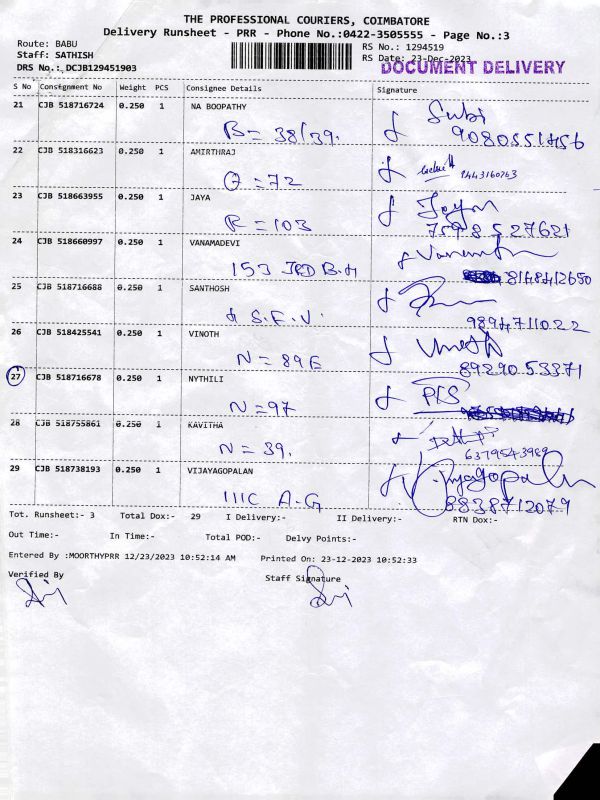 THE PROFESSIONAL COURIERS, COIMBATORE
Delivery Runsheet - PRR - Phone No.:0422-3505555 - Page No.:3
Route: BABU
RS No.: 1294519
Staff: SATHISH
RS Date: 23-Dec-2023
DRS No.: DCJB129451903
DOCUMENT DELIVERY
S No Consignment No Weight PCS Consignee Details Signature
21 CJB 518716724 0.250 1 NA BOOPATHY
B = 38/39. Subi
9080551456
22 CJB 518316623 0.250 1 AMIRTHRAJ
O = 72 9443160763
23 CJB 518663955 0.250 1 JAYA
R = 103
7598527621
24 CJB 518660997 0.250 1 VANAMADEVI
153 8148412650
25 CJB 518716688 0.250 1 SANTHOSH
S.E.V. 9894711022
26 CJB 518425541 0.250 1 VINOTH
N = 89E 8929053371
27 CJB 518716678 0.250 1 NYTHILI
N = 97
28 CJB 518755861 0.250 1 KAVITHA
N = 39. 6379543989
29 CJB 518738193 0.250 1 VIJAYAGOPALAN
111C A.G Vijayagopalan
8838712079
Tot. Runsheet:- 3 Total Dox:- 29 I Delivery:- II Delivery:- RTN Dox:-
Out Time:- In Time:- Total POD:- Delvy Points:-
Entered By :MOORTHYPRR 12/23/2023 10:52:14 AM Printed On: 23-12-2023 10:52:33
Verified By Staff Signature